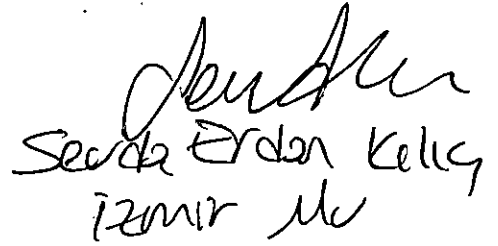 Sevda Erdan Kılıç
İzmir Mv